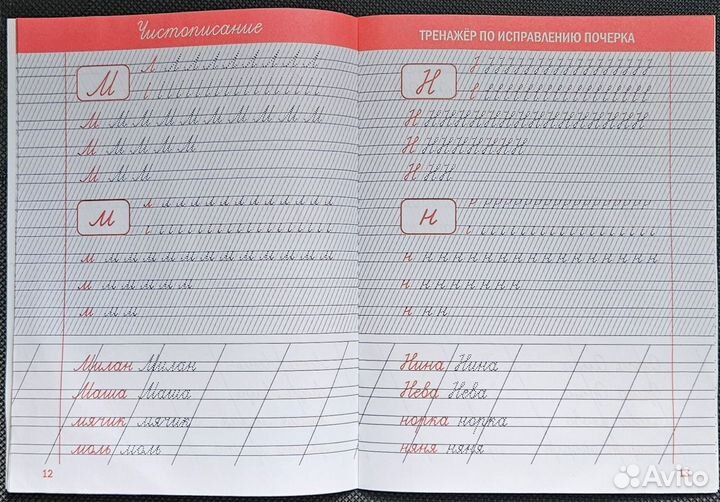 Чистописание
М
М М М М М М М М М М М
М М М М М
М М М
м
м м м м м м м м м м м м м
м м м м м м
м м м
Милан Милан
Маша Маша
мячик мячик
моль моль
12
ТРЕНАЖЁР ПО ИСПРАВЛЕНИЮ ПОЧЕРКА
Н
Н Н Н Н Н Н Н Н Н Н Н Н Н Н Н Н
Н Н Н Н Н Н Н Н
Н Н Н
н
н н н н н н н н н н н н н н н н н
н н н н н н н н
н н н
Нина Нина
Нева Нева
норка норка
няня няня
13
Avito